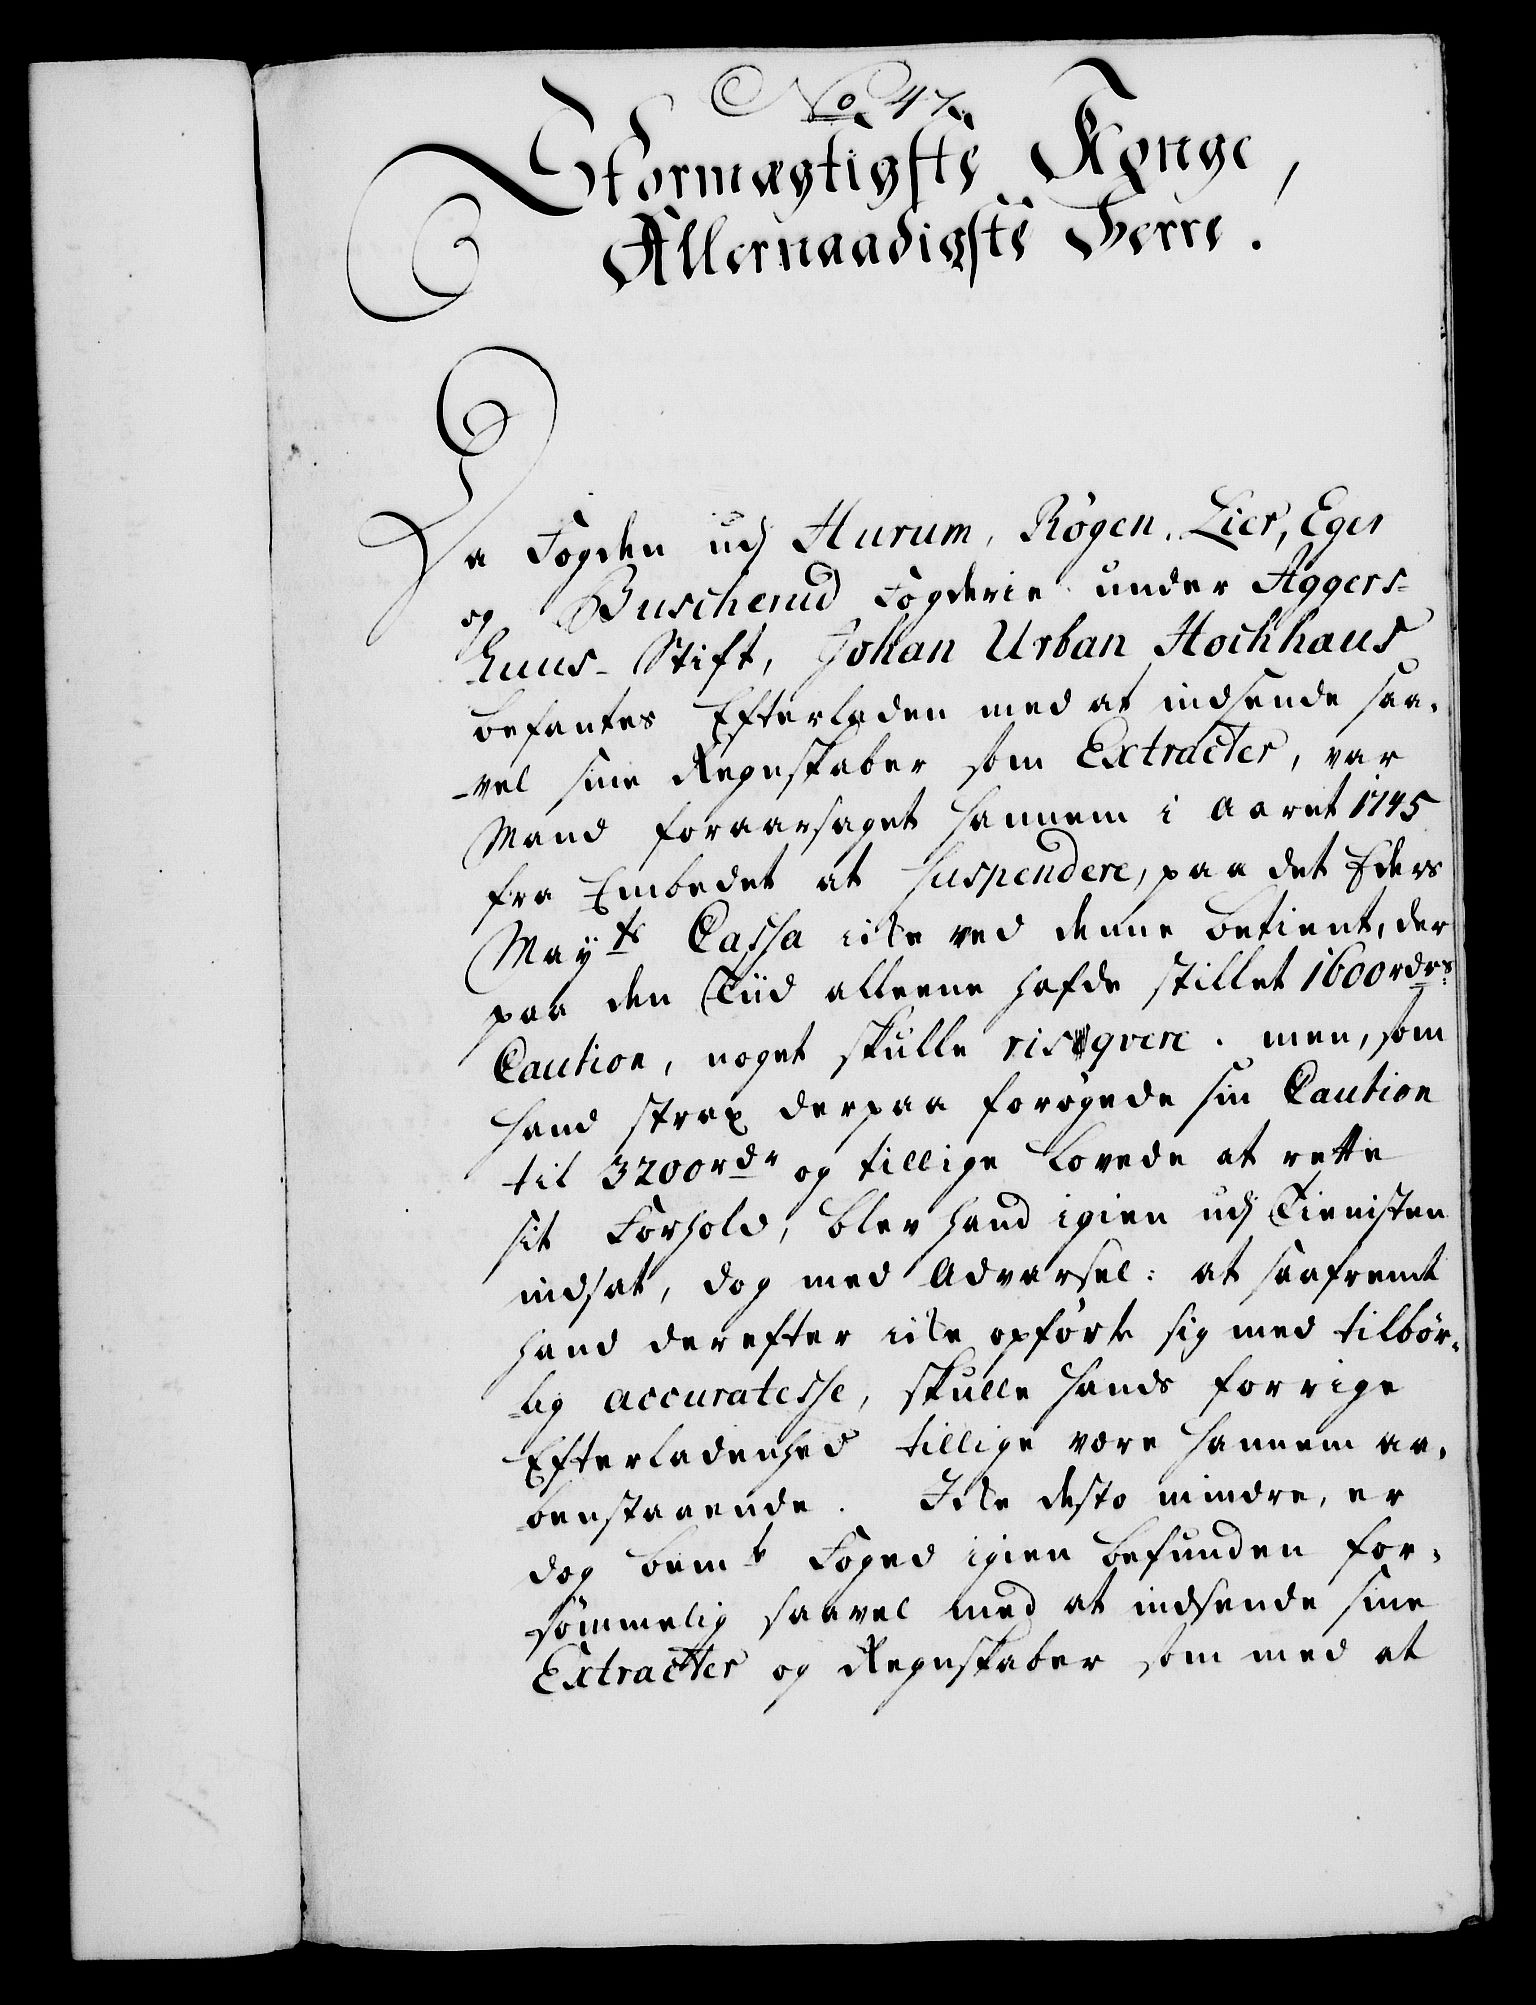 No 47.
Stormægtigste Konge,
Allernaadigste Herre.
Da Fogden udj Hurum, Røgen, Lier, Eger
og Buscherud Fogderie under Aggers-
huus-Stift, Johan Urban Hochhaus
befantes Efterladen med at indsende saa-
-vel sine Regnskaber som Extracter, var
Mand foraarsaget hannem i Aaret 1745
fra Embedet at suspendere, paa det Eders
Mayts Cassa icke ved denne betient, der
paa den Tiid alleene hafde stillet 1600 rdrs
Caution, noget skulle risqvere. men, som
hand strax derpaa forøgede sin Caution
til 3200 rdr og tillige lovede at rette
sit Forhold, blev hand igien udj Tienisten
indsat, dog med Advarsel: at saafremt
hand derefter icke opførte sig med tilbør-
-lig accuratesse, skulle hands forrige
Efterladenhed tillige være hannem aa-
benstaaende. Icke desto mindre, er
dog bemte Foged igien befunden for-
-sømmelig saavel med at indsende sine
Extracter og Regnskaber som med at